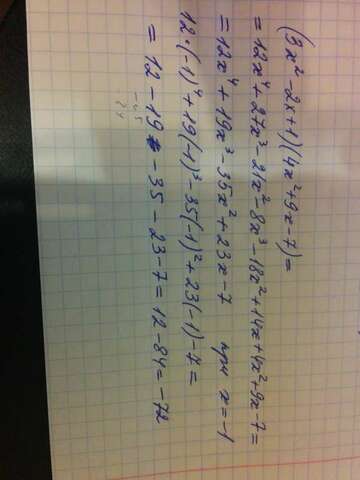 (3x²-2x+1)(4x²+9x-7)=
=12x⁴+27x³-21x²-8x³-18x²+14x+4x²+9x-7=
=12x⁴+19x³-35x²+23x-7 при x=-1
12·(-1)⁴+19(-1)³-35(-1)²+23(-1)-7=
=12-19-35-23-7=12-84=-72